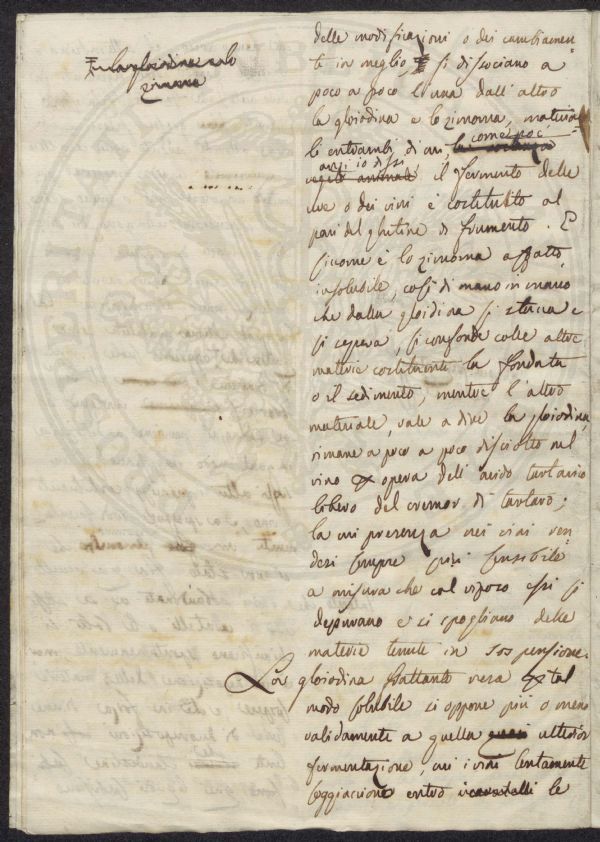 la gloiodina e lo
zimoma
delle modificazioni o dei cambiamen-
ti in meglio, si dissociano a
poco a poco l'una dall'altro
la gloiodina e lo zimoma, materia-
li entrambi di cui, come poc'
anzi io dissi
vegeto animale il fermento delle
uve o dei vini è costituito al
pari del glutine di frumento. E
siccome è lo zimoma affatto
insolubile, così di mano in mano
che dalla gloiodina si stacca e
si separa, si confonde colle altre
materie costituenti la fondata
o il sedimento, mentre l'altro
materiale, vale a dire la gloiodina,
rimane a poco a poco disciolto nel
vino per opera dell'acido tartarico
libero del cremor di tartaro;
la cui presenza nei vini ren-
desi sempre più sensibile
a misura che col riposo essi si
depurano e si spogliano delle
materie tenute in sospensione.
La gloiodina frattanto resa per tal
modo solubile si oppone più o meno
validamente a quella ulterior
fermentazione, cui i vini lentamente
soggiacciono entro i le